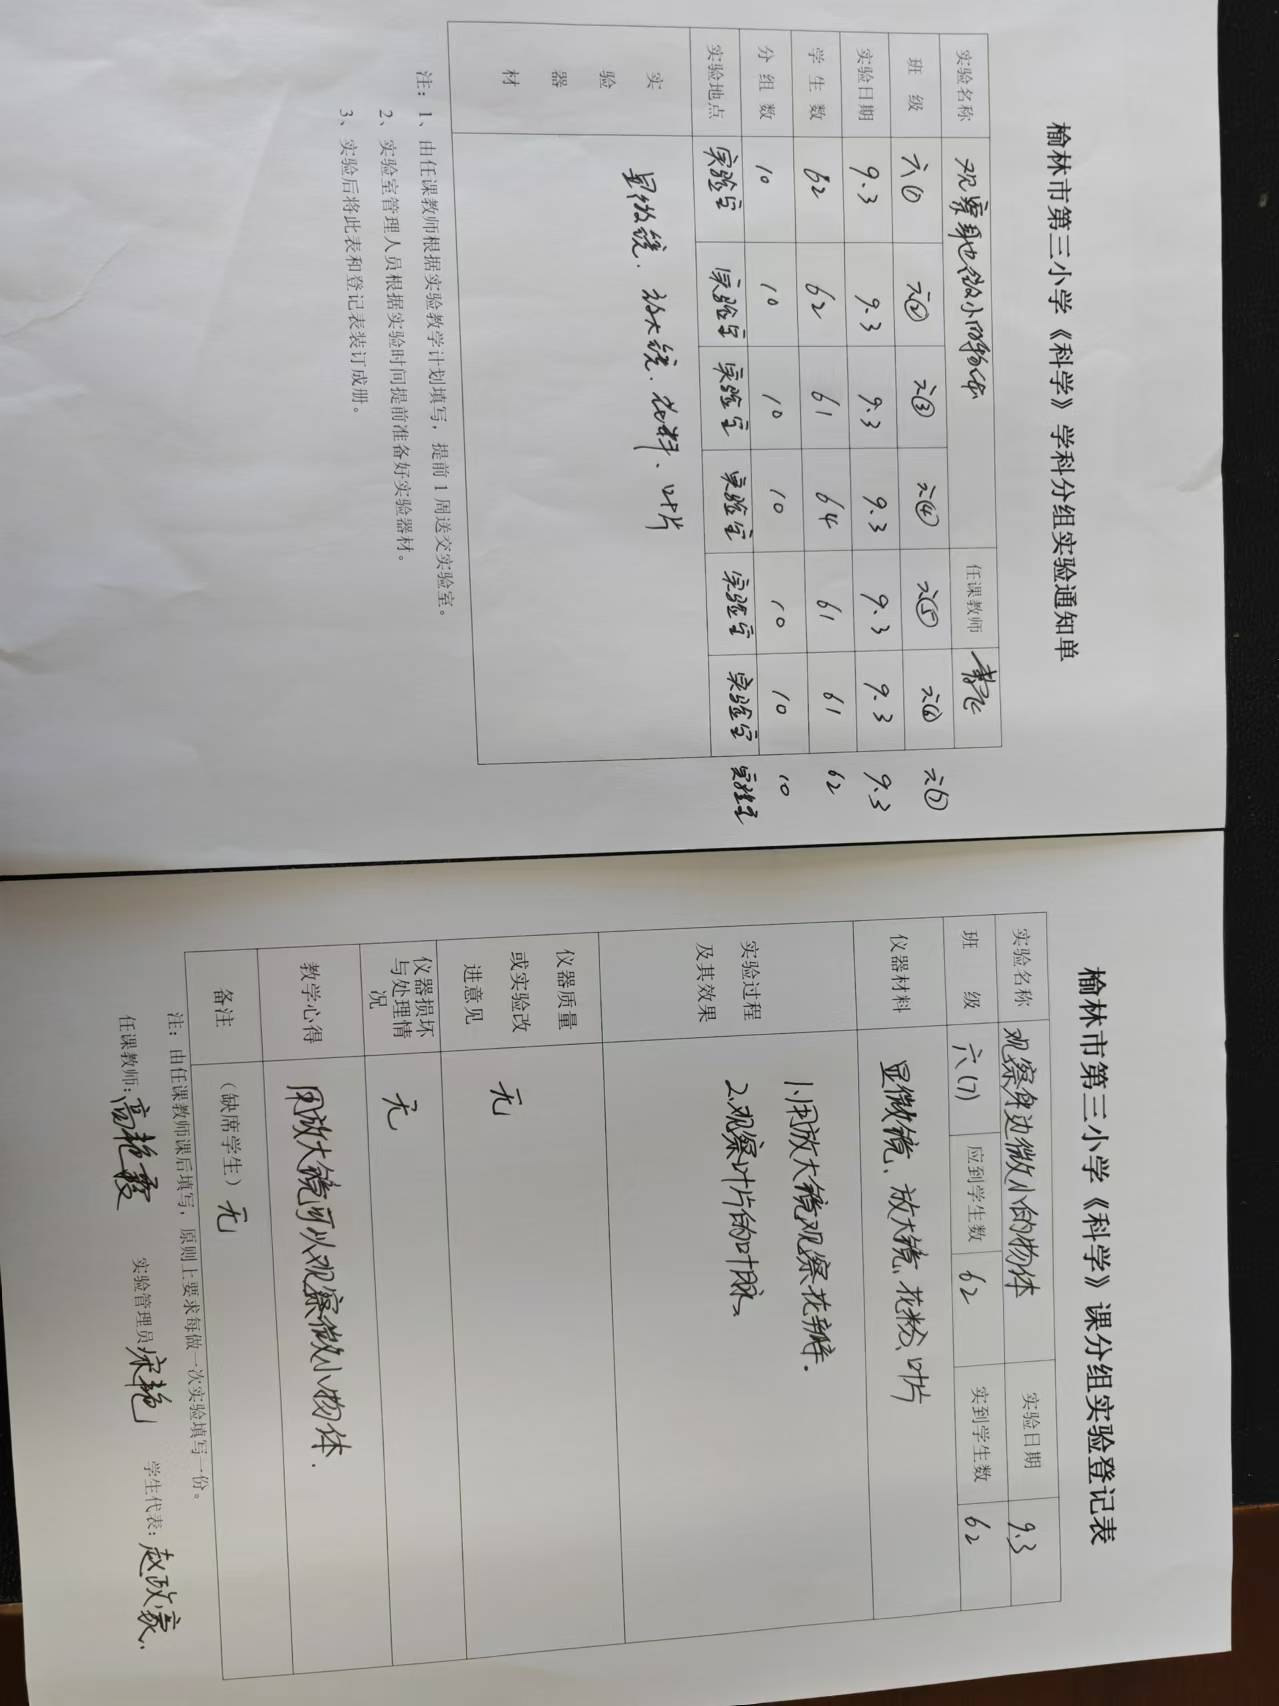 榆林市第三小学《科学》学科分组实验通知单
实验名称 观察身边微小的物体 任课教师
班 级 六(1) 六② 六③ 六④ 六⑤ 六⑥ 六⑦
实验日期 9.3 9.3 9.3 9.3 9.3 9.3 9.3
学 生 数 62 62 61 64 61 61 62
分 组 数 10 10 10 10 10 10 10
实验地点 实验室 实验室 实验室 实验室 实验室 实验室 实验室
实 验 器 材 显微镜、放大镜、花粉、叶片
注：1、由任课教师根据实验教学计划填写，提前 1 周送交实验室。
2、实验室管理人员根据实验时间提前准备好实验器材。
3、实验后将此表和登记表装订成册。
榆林市第三小学《科学》课分组实验登记表
实验名称 观察身边微小的物体 实验日期 9.3
班 级 六(7) 应到学生数 62 实到学生数 62
仪器材料 显微镜、放大镜、花粉、叶片
实验过程
及其效果
1.用放大镜观察花瓣.
2.观察叶片的叶脉。
仪器质量
或实验改
进意见
无
仪器损坏
与处理情
况
无
教学心得 用放大镜可以观察微小物体.
备注 （缺席学生）无
注：由任课教师课后填写，原则上要求每做一次实验填写一份。
任课教师: 高艳霞 实验管理员 宋艳 学生代表: 赵政家